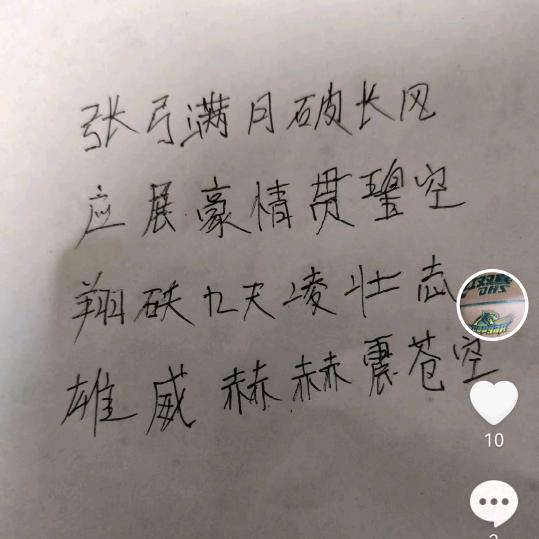 张弓满月破长风
应展豪情贯碧空
翔跃九天凌壮志
雄威赫赫震苍空
10